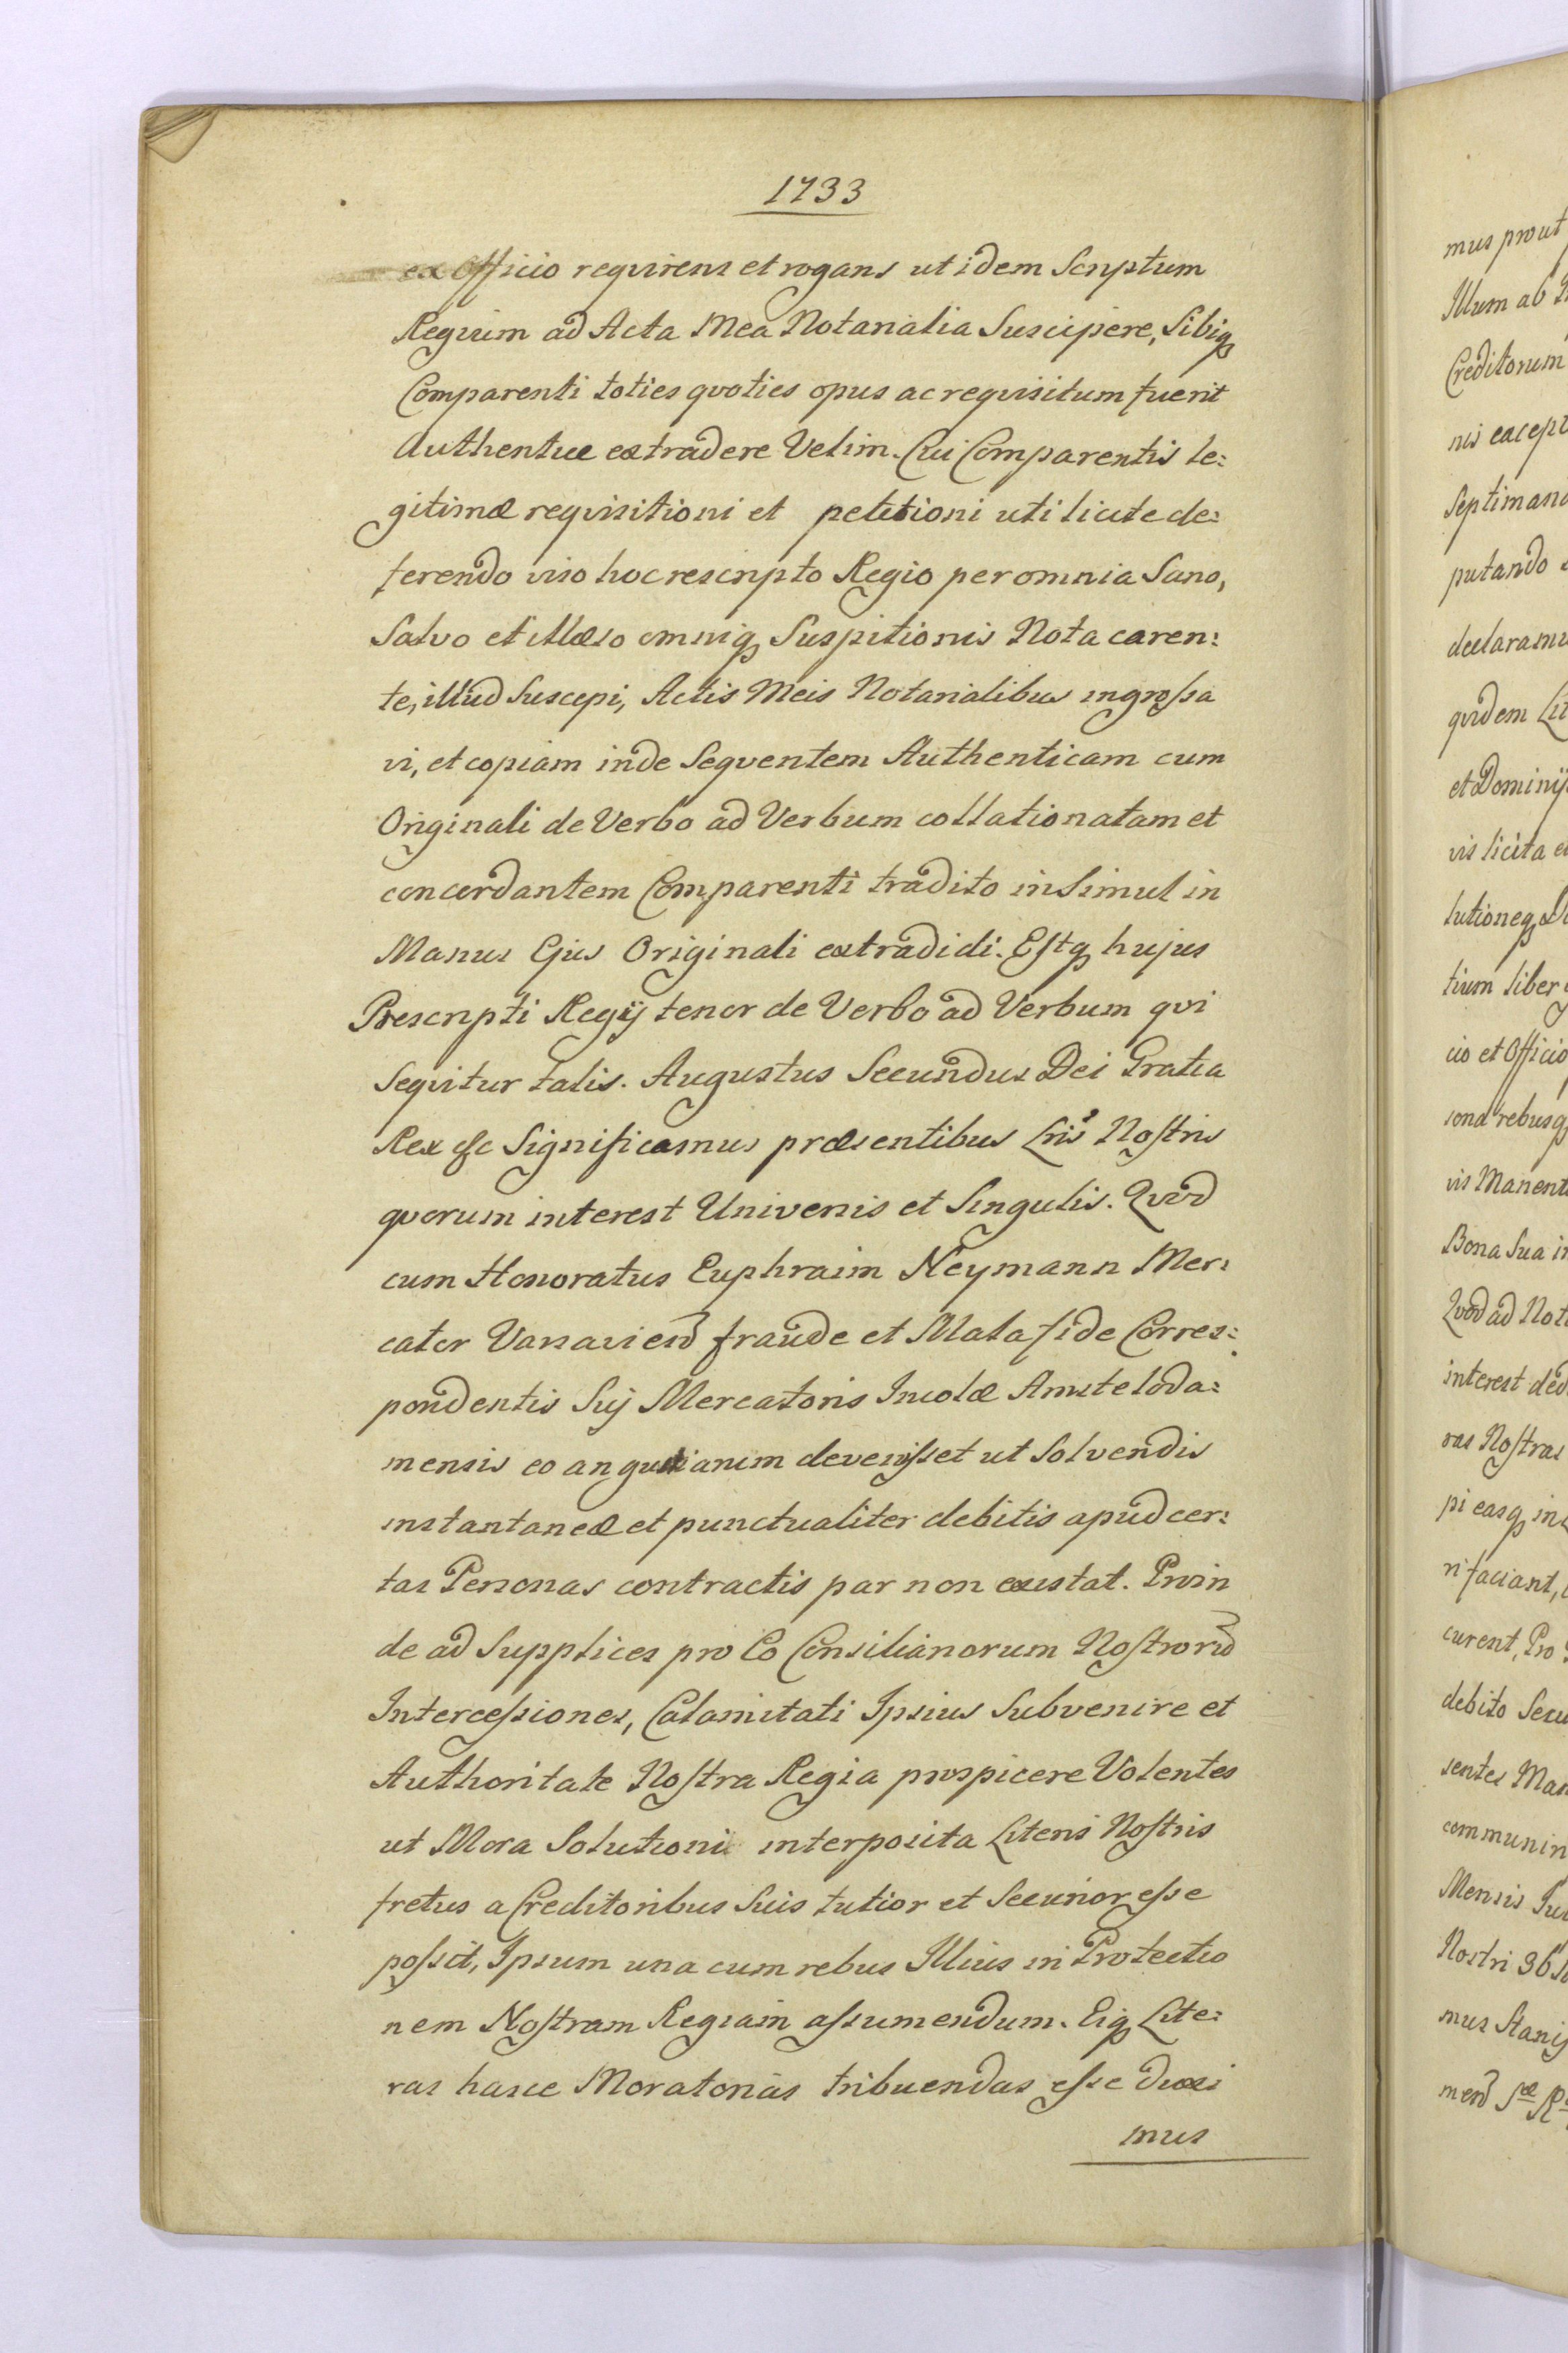 1733
ex Officio requirens et rogans ut idem Scriptum
Regium ad Acta Mea Notarialia Suscipere, Sibiq
Comparenti toties quoties opus ac requisitum fuerit
Authentice extradere Velim. Cui Comparentis le:
gitimæ requisitioni et petitioni uti licite de:
ferendo viso hoc rescripto Regio per omnia Sano,
Salvo et illæso omniq Suspitionis Nota caren:
te, illud Suscepi, Actis Meis Notarialibus ingrossa
vi, et copiam inde Sequentem Authenticam cum
Originali de Verbo ad Verbum collationatam et
concordantem Comparenti tradito insimul in
Manus Ejus Originali extradidi. Estq hujus
Rescripti Regij tenor de Verbo ad Verbum qvi
Seqvitur talis. Augustus Secundus Dei Gratia
Rex &c Significamus præsentibus Lris Nostris
qvorum interest Universis et Singulis. Qvod
cum Honoratus Euphraim Neymann Mer:
cator Varsavien fraude et Mala fide Corres:
pondentis Sui Mercatoris Incolæ Amsteloda:
mensis eo angustiarum devenisset ut Solvendis
instantaneæ et punctualiter debitis apud cer:
tas Personas contractis par non existat. Proin
de ad Supplices pro Eo Consiliariorum Nostroru
Intercessiones, Calamitati Ipsius Subvenire et
Authoritate Nostra Regia prospicere Volentes
ut Mora Solutioni interposita Literis Nostris
fretus a Creditoribus Suis tutior et Securior esse
possit, Ipsum una cum rebus Illius in Protectio
nem Nostram Regiam assumendum. Eiq Lite:
ras hasce Moratorias tribuendas esse duxi
mus
mus prout
Illum ab
Creditorum
nis except
Septimana
putando
declaramu
qvidem Lit
et Dominij
vis licita
lutioneq
tium liber
cio et Officio
sona rebusq
vis Manent
Bona Sua in
Qvod ad Not
interest ded
ras Nostras
pi easq in
ri faciant,
curent, Pro
debito Secu
sentes Man
communin
Mensis Jul
Nostri 36
mus Stanis
men